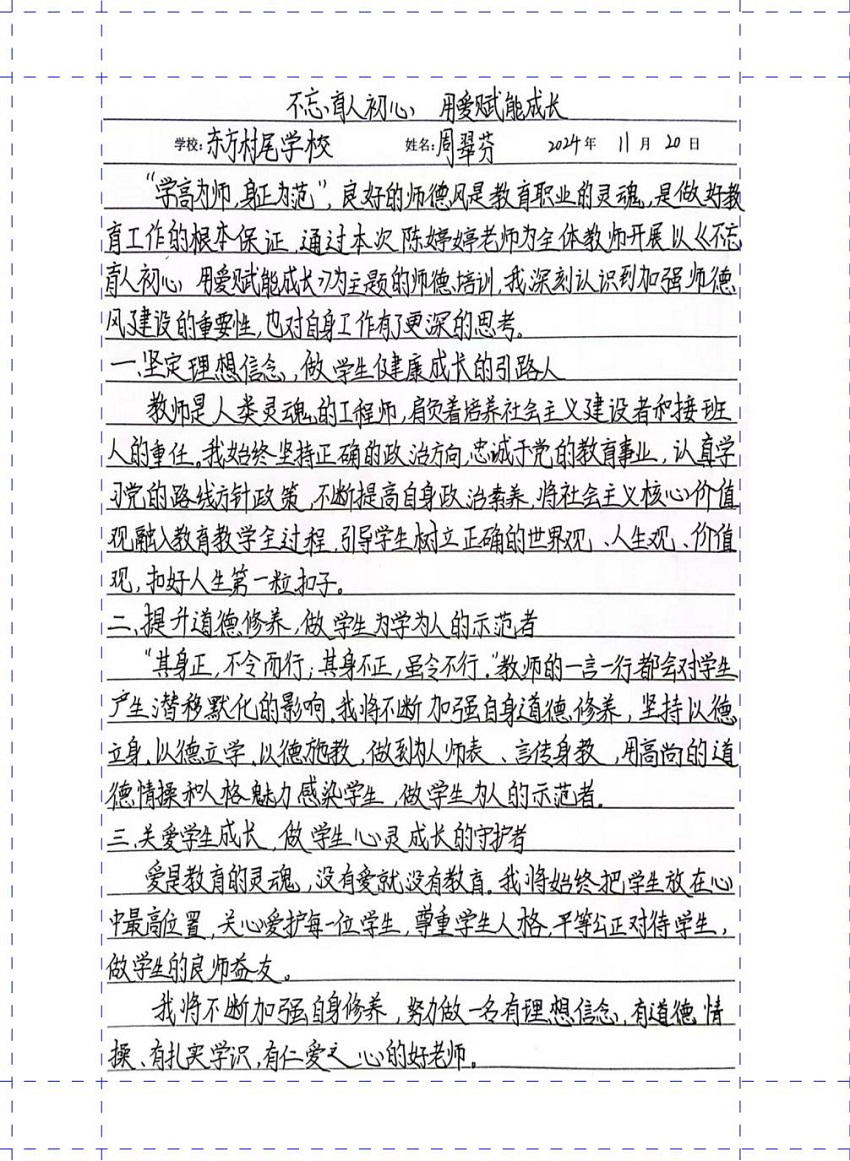 不忘育人初心 用爱赋能成长
学校:东方村尾学校 姓名:周翠芬 2024年 11月 20日
“学高为师,身正为范”,良好的师德风是教育职业的灵魂,是做好教
育工作的根本保证,通过本次陈婷婷老师为全体教师开展以《不忘
育人初心 用爱赋能成长》为主题的师德培训,我深刻认识到加强师德
风建设的重要性,也对自身工作有了更深的思考。
一、坚定理想信念,做学生健康成长的引路人
教师是人类灵魂的工程师,肩负着培养社会主义建设者和接班
人的重任。我始终坚持正确的政治方向,忠诚于党的教育事业,认真学
习党的路线方针政策,不断提高自身政治素养,将社会主义核心价值
观融入教育教学全过程,引导学生树立正确的世界观、人生观、价值
观,扣好人生第一粒扣子。
二、提升道德修养,做学生为学为人的示范者
“其身正,不令而行;其身不正,虽令不行。”教师的一言一行都会对学生
产生潜移默化的影响。我将不断加强自身道德修养,坚持以德
立身,以德立学,以德施教,做到为人师表、言传身教,用高尚的道
德情操和人格魅力感染学生,做学生为人的示范者。
三、关爱学生成长,做学生心灵成长的守护者
爱是教育的灵魂,没有爱就没有教育。我将始终把学生放在心
中最高位置,关心爱护每一位学生,尊重学生人格,平等公正对待学生,
做学生的良师益友。
我将不断加强自身修养,努力做一名有理想信念,有道德情
操、有扎实学识,有仁爱之心的好老师。